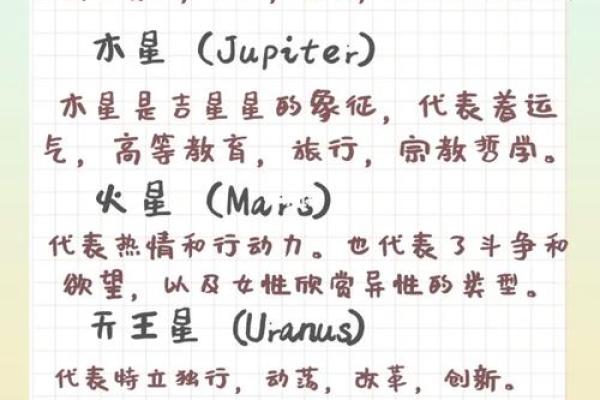 木星（Jupiter）
木星是吉星星的象征，代表着运
气，高等教育，旅行，宗教哲学。
火星（Mars）
代表热情和行动力。也代表了斗争和
欲望，以及女性欣赏异性的类型。
天王星（Uranus）
代表特立独行，动荡，改革，创新。